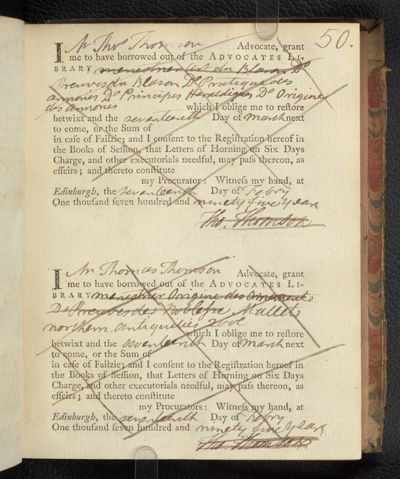 50.
I Mr Thos Thomson Advocate, grant
me to have borrowed out of the ADVOCATES LI-
BRARY menestrier art du Blason Do
Preuves du Blason Do Pratique des
armories Do Principes Heraldiques Do Origine
des armories which I oblige me to reſtore
betwixt and the seventeenth Day of March next
to come, or the Sum of
in caſe of Failzie; and I conſent to the Regiſtration hereof in
the Books of Seſſion, that Letters of Horning on Six Days
Charge, and other executorials needful, may paſs thereon, as
effeirs; and thereto conſtitute
my Procurators: Witneſs my hand, at
Edinburgh, the seventeenth Day of Febry
One thouſand ſeven hundred and ninety five Years
Tho. Thomson
I Mr Thomas Thomson Advocate, grant
me to have borrowed out of the ADVOCATES LI-
BRARY menestrier Origine des Ornements
Do des Noblesse Mallets
northern antiquities 2 vol
which I oblige me to reſtore
betwixt and the seventeenth Day of March next
to come, or the Sum of
in caſe of Failzie; and I conſent to the Regiſtration hereof in
the Books of Seſſion, that Letters of Horning on Six Days
Charge, and other executorials needful, may paſs thereon, as
effeirs; and thereto conſtitute
my Procurators: Witneſs my hand, at
Edinburgh, the seventeenth Day of Febry
One thouſand ſeven hundred and ninety five Years
Tho. Thomson